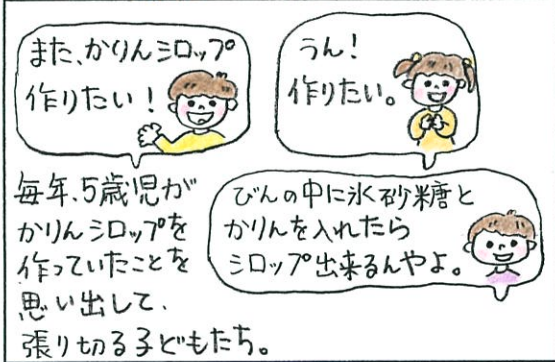 また、かりんシロップ
作りたい！
うん！
作りたい。
毎年、5歳児が
かりんシロップを
作っていたことを
思い出して、
張り切る子どもたち。
びんの中に氷砂糖と
かりんを入れたら
シロップ出来るんやよ。